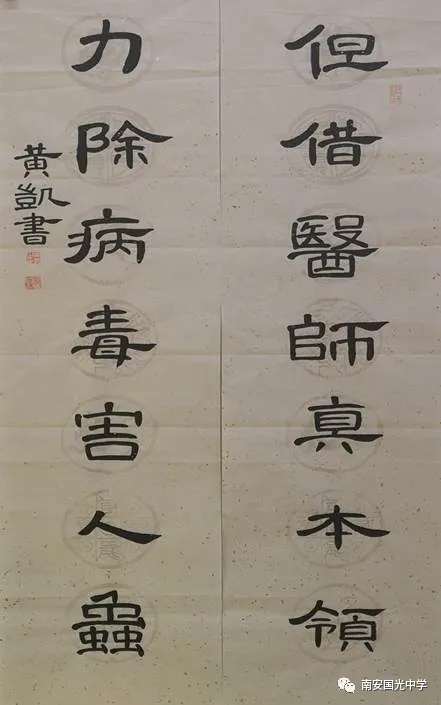 但借醫師真本領
力除病毒害人蟲
黄凱書
南安国光中学